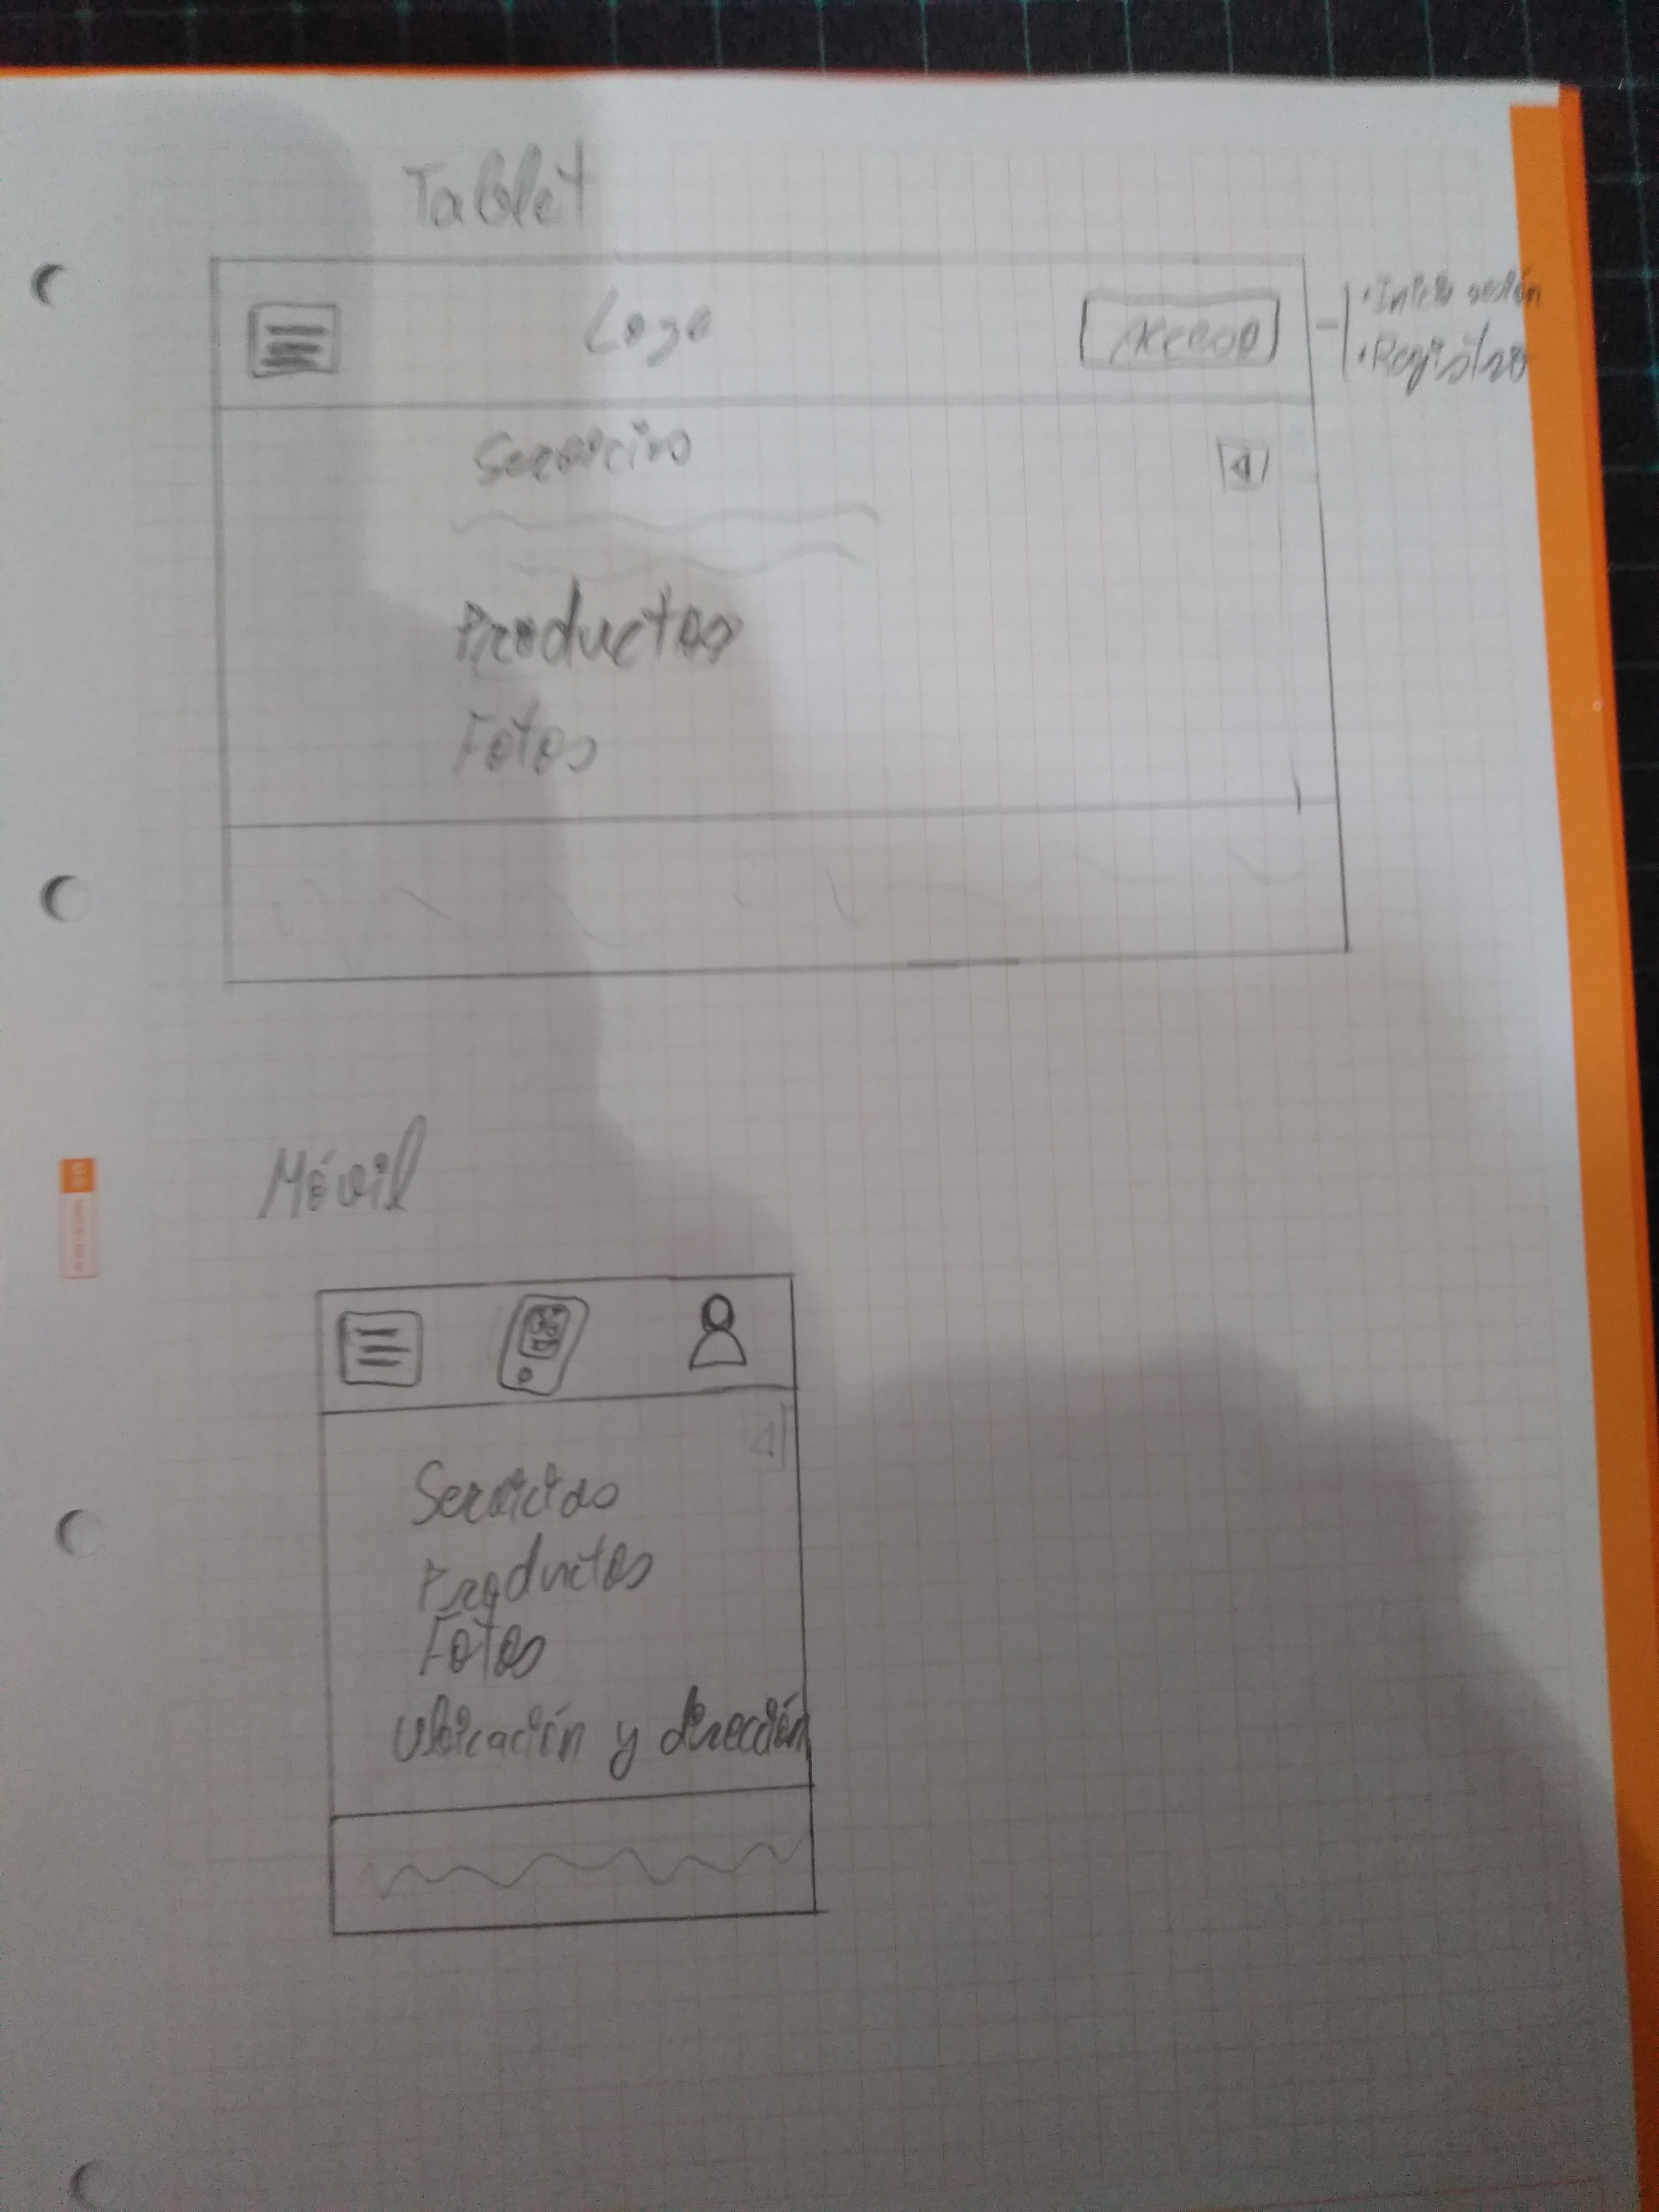 Tablet
Logo
Acceso
• Inicio sesión
• Registro
Servicios
Productos
Fotos
Móvil
Servicios
Productos
Fotos
Ubicación y dirección